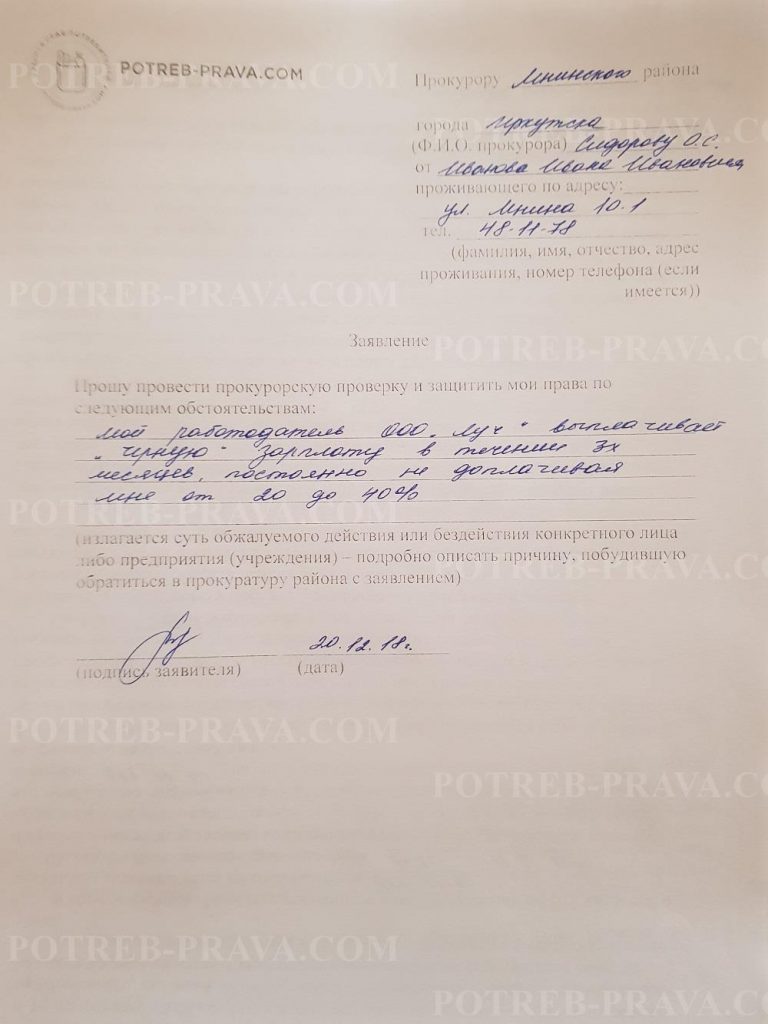 POTREB-PRAVA.COM
Прокурору Мнинского района
города Иркутска
(Ф.И.О. прокурора) Сидорову О.С.
от Иванова Ивана Ивановича
проживающего по адресу:
ул. Мнина 10-1
тел. 48-11-78
(фамилия, имя, отчество, адрес
проживания, номер телефона (если
имеется))
Заявление
Прошу провести прокурорскую проверку и защитить мои права по
следующим обстоятельствам:
мой работодатель ООО „Луч“ выплачивает
„черную“ зарплату в течении 3х
месяцев, постоянно не доплачивая
мне от 20 до 40%
(излагается суть обжалуемого действия или бездействия конкретного лица
либо предприятия (учреждения) – подробно описать причину, побудившую
обратиться в прокуратуру района с заявлением)
20.12.18г.
(подпись заявителя) (дата)
POTREB-PRAVA.COM
POTREB-PRAVA.COM
POTREB-PRAVA.CO
POTREB-PRAVA.COM
POTREB-PRAVA.CO
POTREB-PRAVA.COM
POTREB-PRAVA.CO
POTREB-PRAVA.COM
POTREB-PRAVA.CO